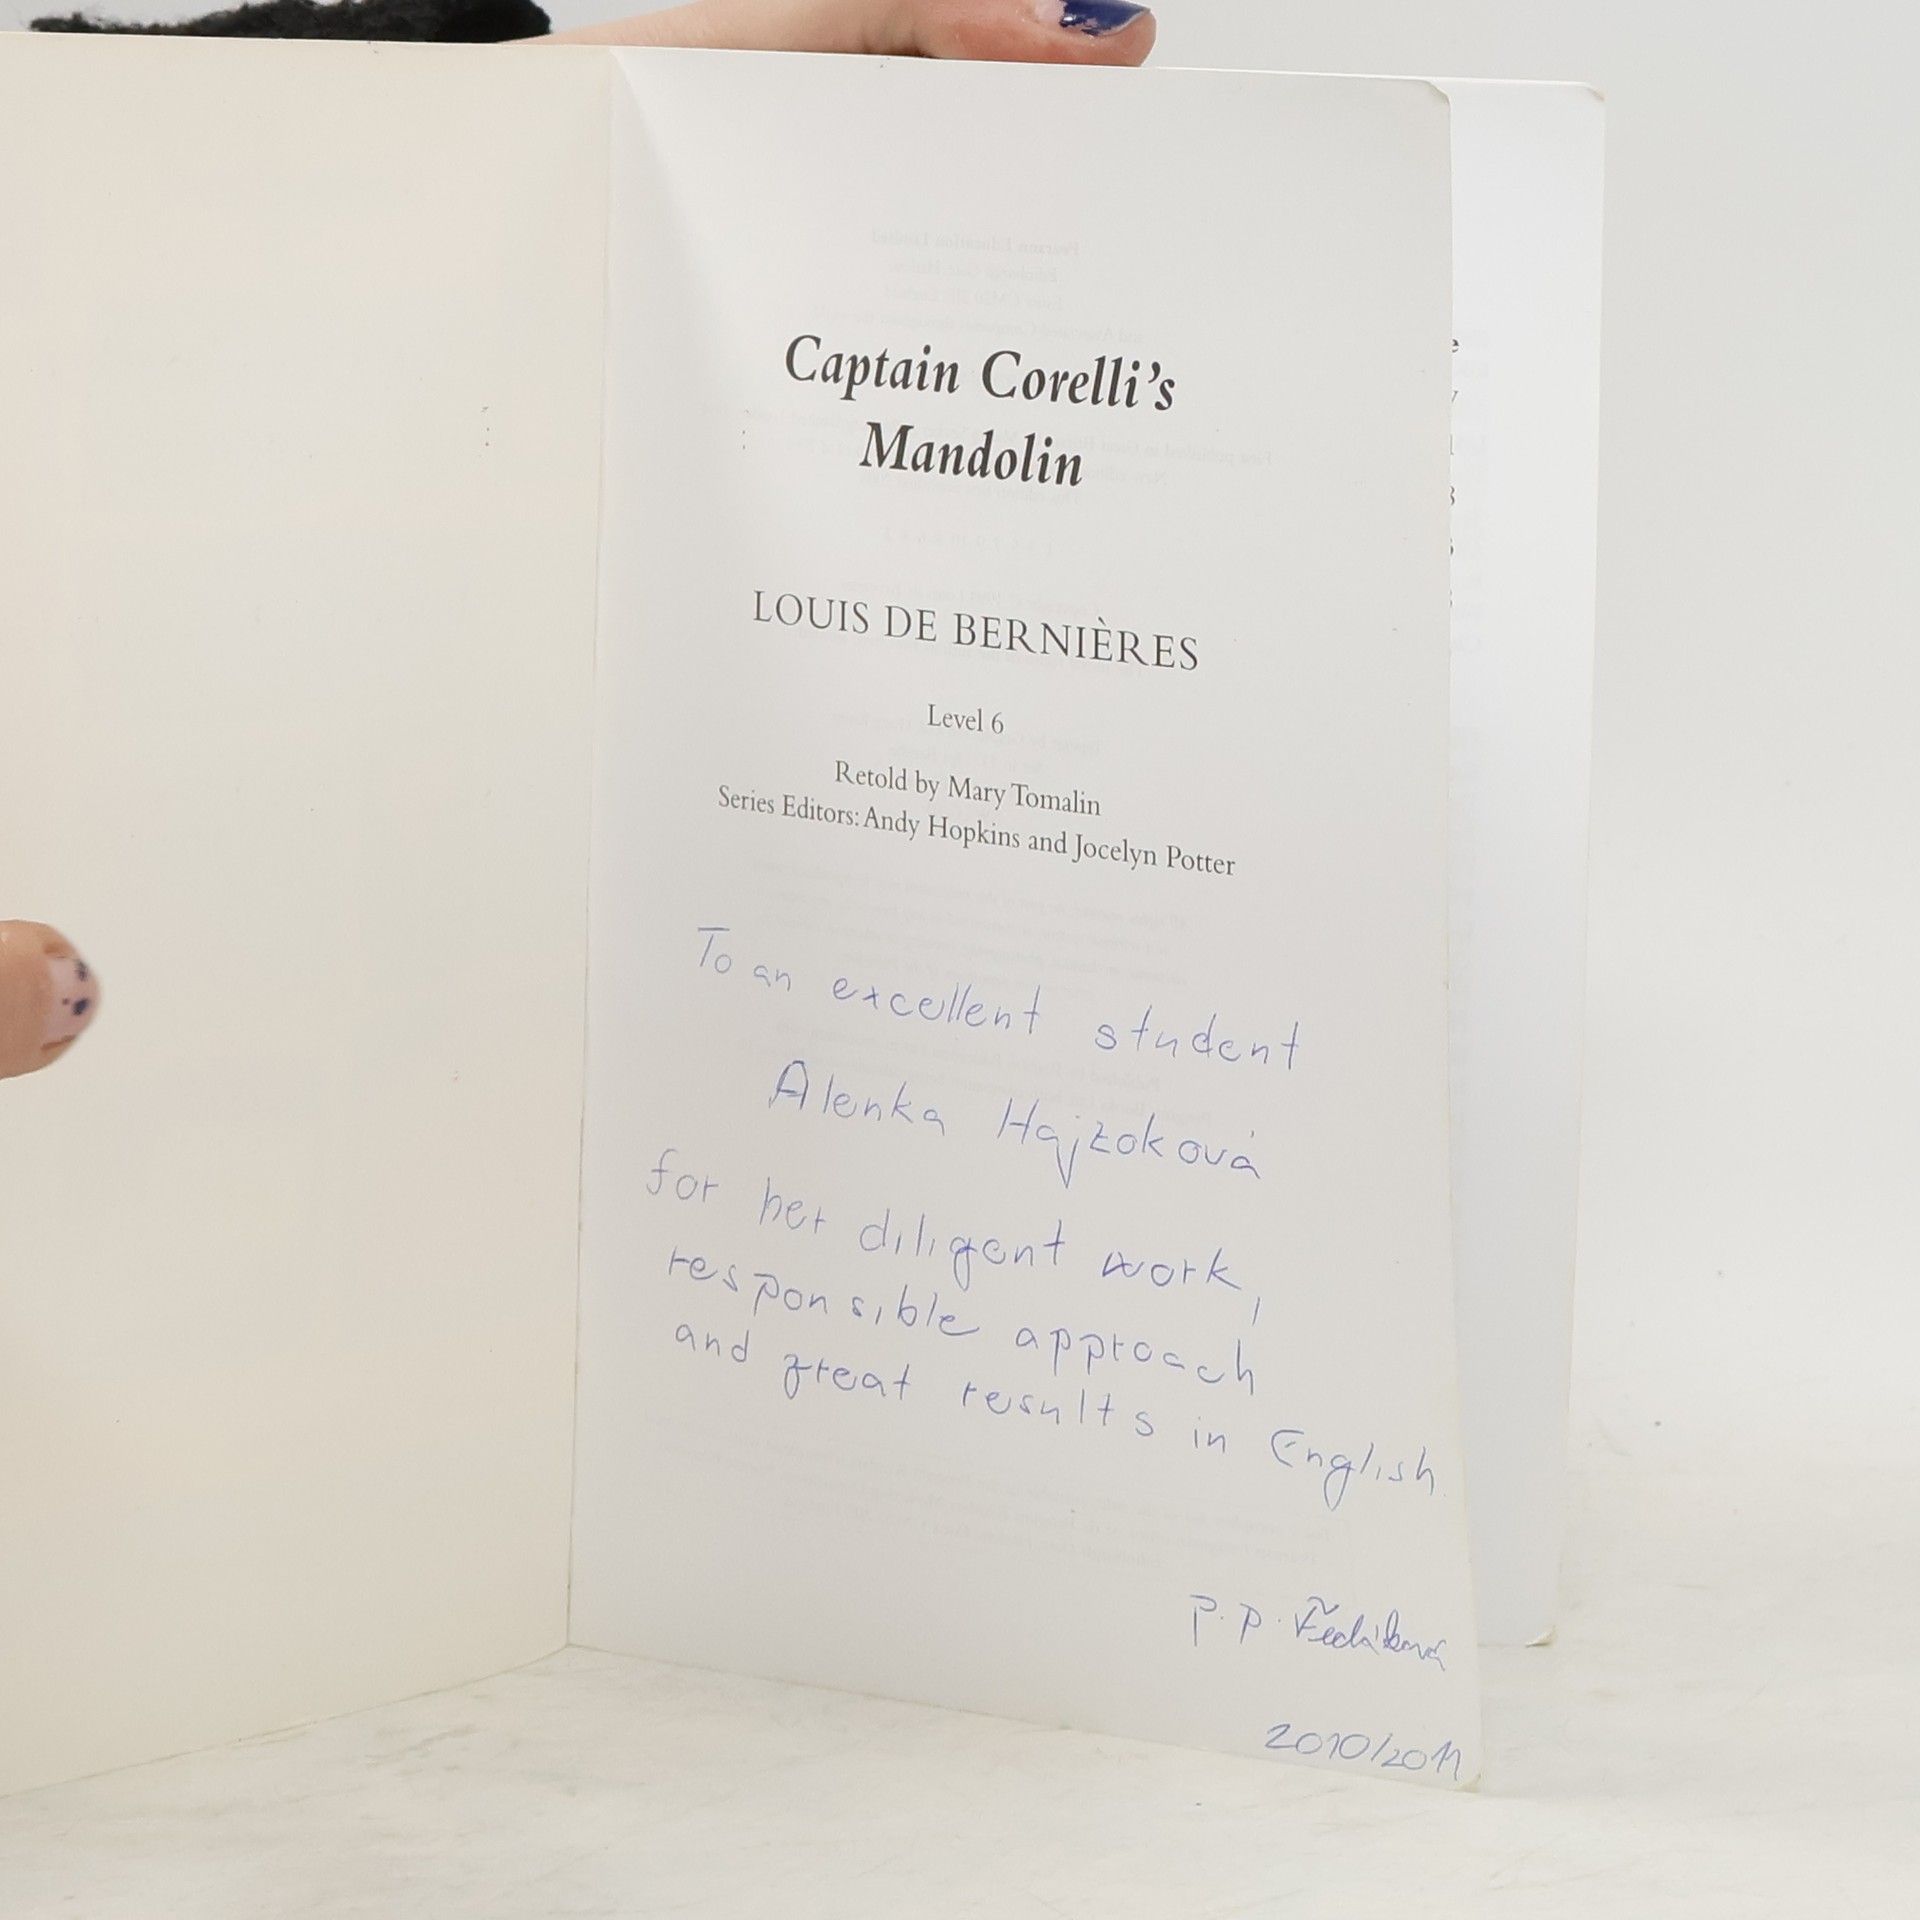 Captain Corelli's
Mandolin
LOUIS DE BERNIÈRES
Level 6
Retold by Mary Tomalin
Series Editors: Andy Hopkins and Jocelyn Potter
To an excellent student
Alenka Hajzoková
for her diligent work,
responsible approach
and great results in English.
P. P.
2010/2011